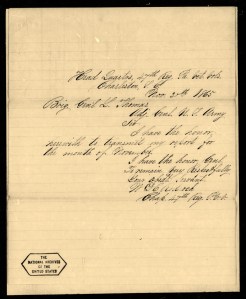 Head Quarters, 47th Reg. Pa. Vet. Vols.
Charleston, S. C.
Nov. 30th 1865
Brig. Genl. L. Thomas
Adj. Genl. U. S. Army
Sir
I have the honor,
herewith to transmit my report for
the month of November.
I have the honor, Genl,
to remain, Very Respectfully
Your Obdt. Servt.
Chap. 47th Reg. P. V. V.
THE
NATIONAL ARCHIVES
OF THE
UNITED STATES